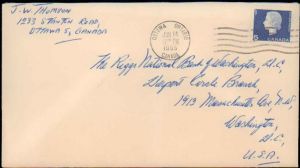 J-W. Thomson
1233 Stanton Road,
Ottawa 5, Canada
OTTAWA ONTARIO
1965
CANADA
5
CANADA
The Riggs National Bank of Washington, D.C,
Dupont Circle Branch,
1913 Massachusetts Ave, N.W,
Washington,
D.C,
U.S.A.